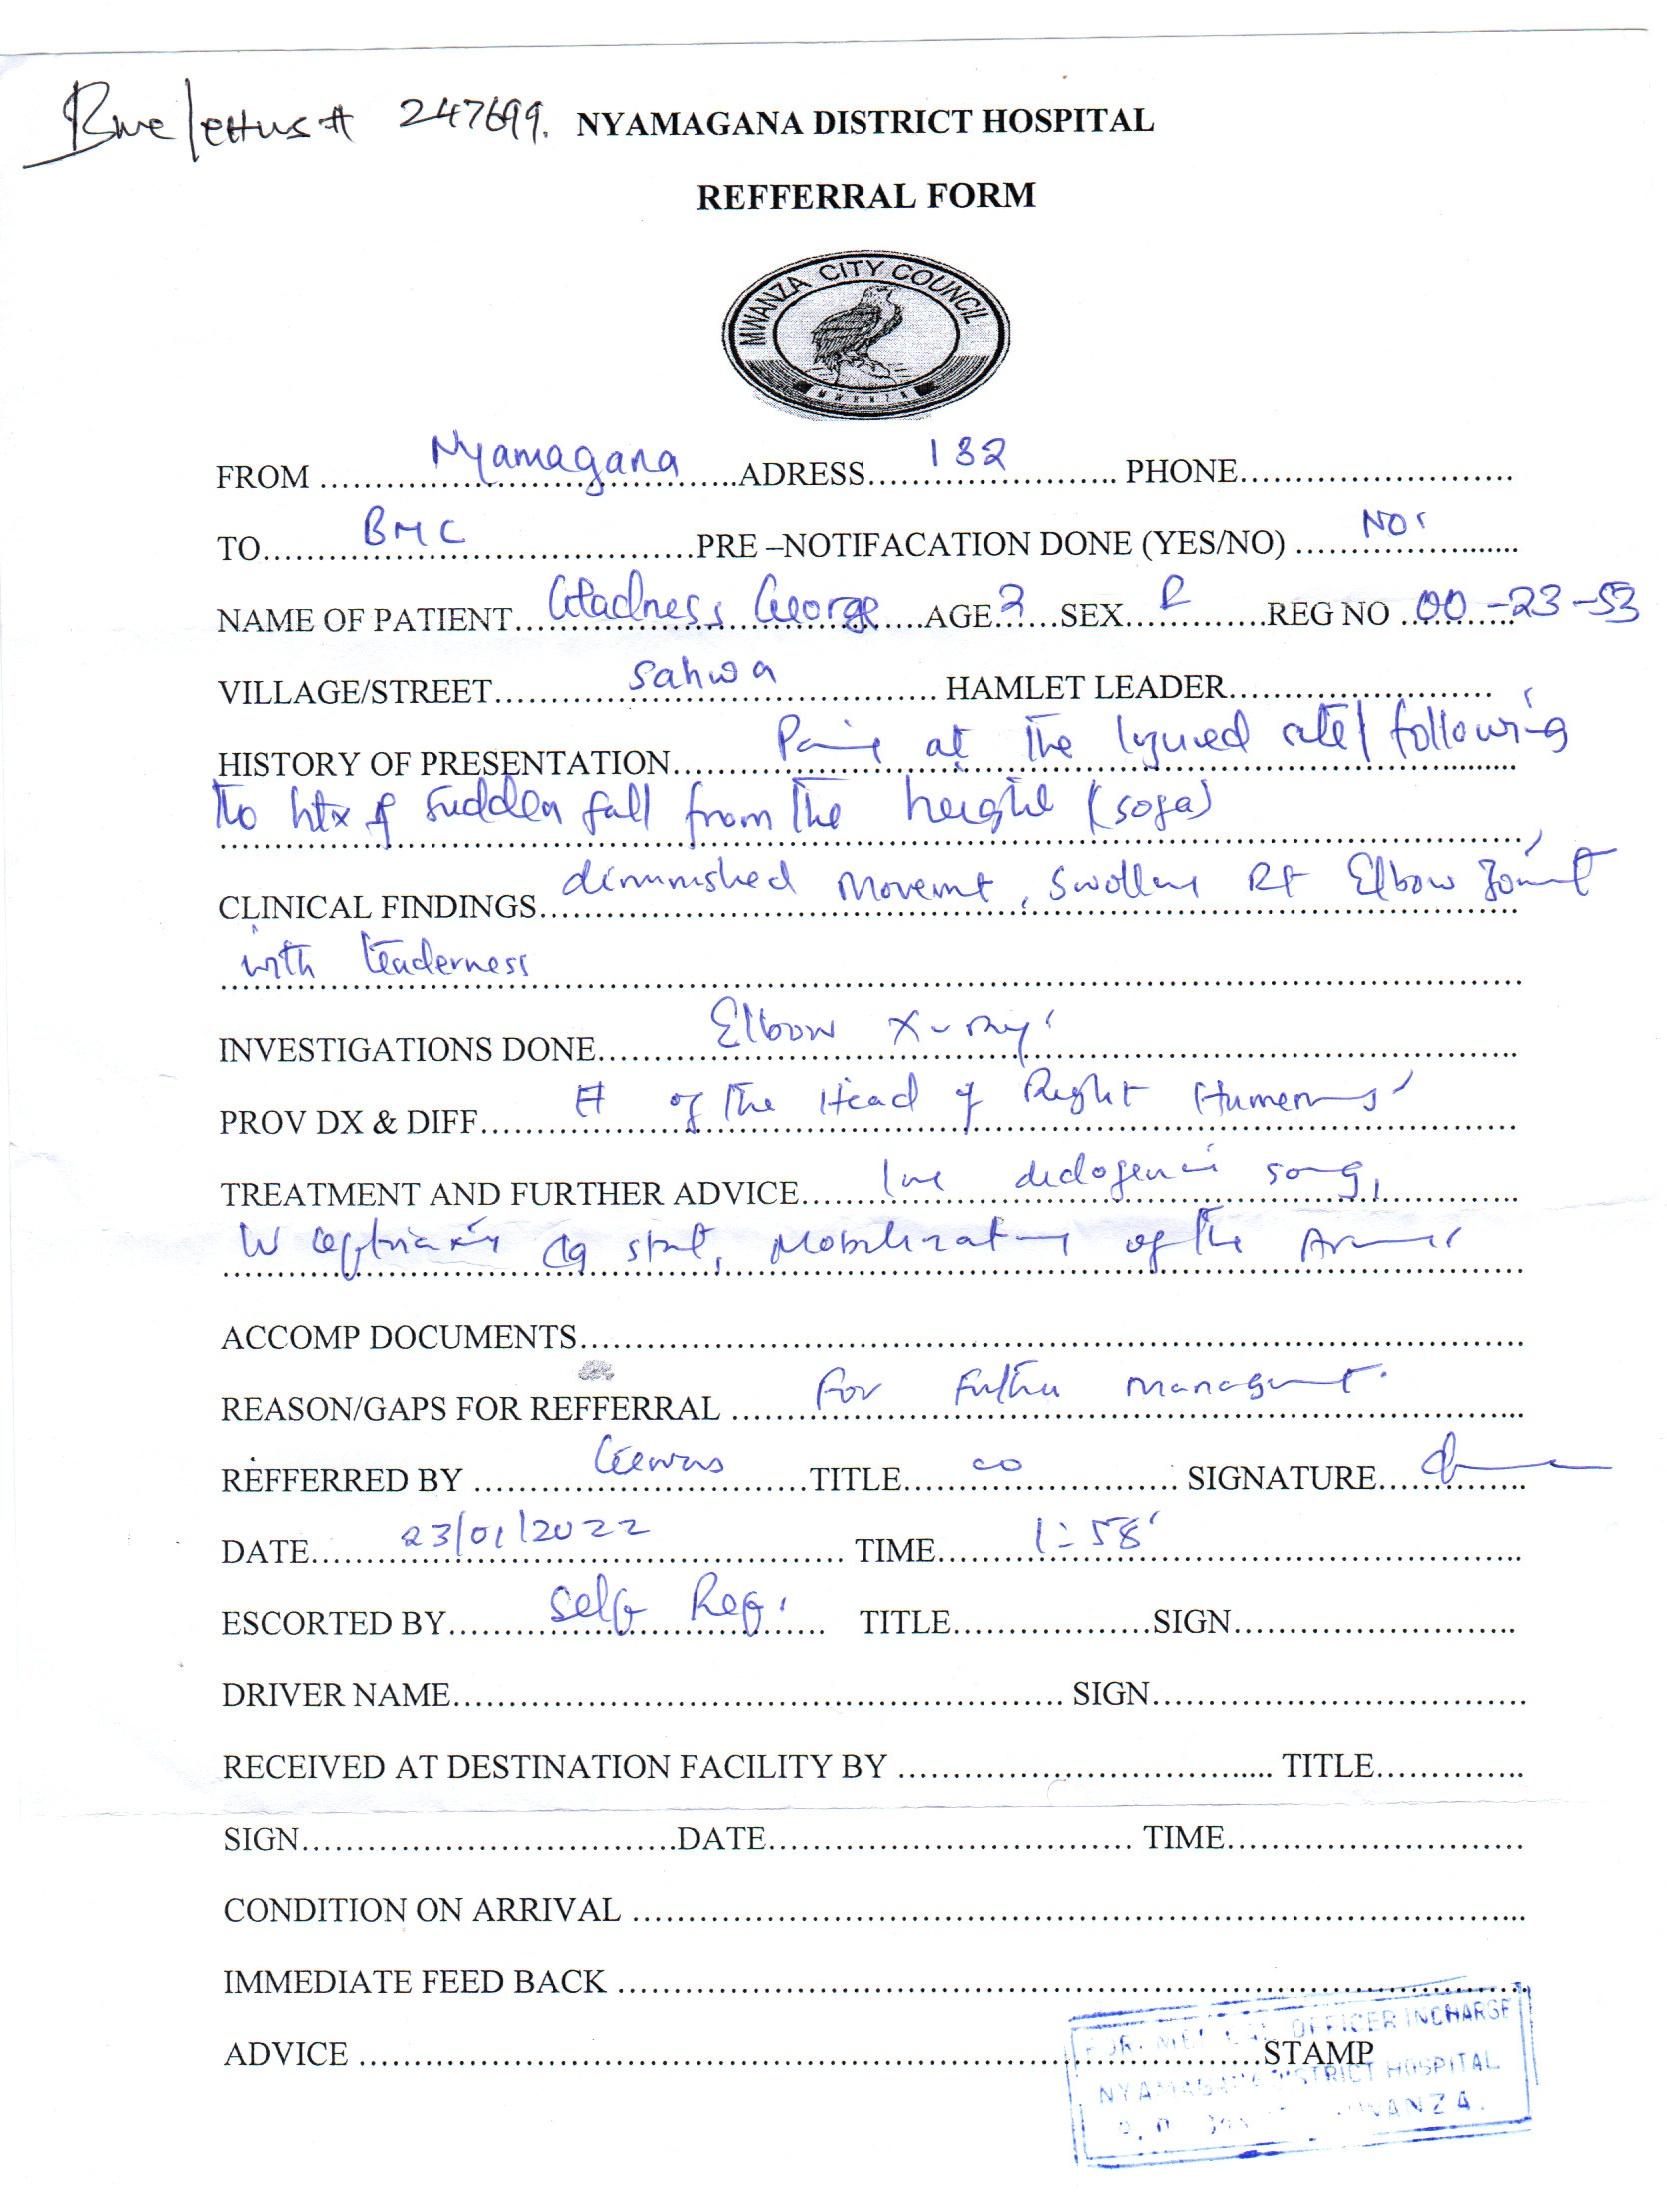 247699. NYAMAGANA DISTRICT HOSPITAL
REFFERRAL FORM
MWANZA CITY COUNCIL
MWANZA
FROM Nyamagana ADRESS 132 PHONE
TO BMC PRE –NOTIFACATION DONE (YES/NO) NO
NAME OF PATIENT Gladness George AGE 2 SEX F REG NO 00-23-53
VILLAGE/STREET sahwa HAMLET LEADER
HISTORY OF PRESENTATION at the site following
to htx of sudden fall from the height (sofa)
CLINICAL FINDINGS diminished movemt, Rt Elbow Joint
with tenderness
INVESTIGATIONS DONE Elbow X-ray
PROV DX & DIFF # of the Head of Right Humerus
TREATMENT AND FURTHER ADVICE
stat, of the
ACCOMP DOCUMENTS
REASON/GAPS FOR REFFERRAL For managemt.
REFFERRED BY TITLE CO SIGNATURE
DATE 23/01/2022 TIME 1:58
ESCORTED BY self TITLE SIGN
DRIVER NAME SIGN
RECEIVED AT DESTINATION FACILITY BY TITLE
SIGN DATE TIME
CONDITION ON ARRIVAL
IMMEDIATE FEED BACK
OFFICER INCHARGE
ADVICE STAMP
NYAMAGANA DISTRICT HOSPITAL
MWANZA.